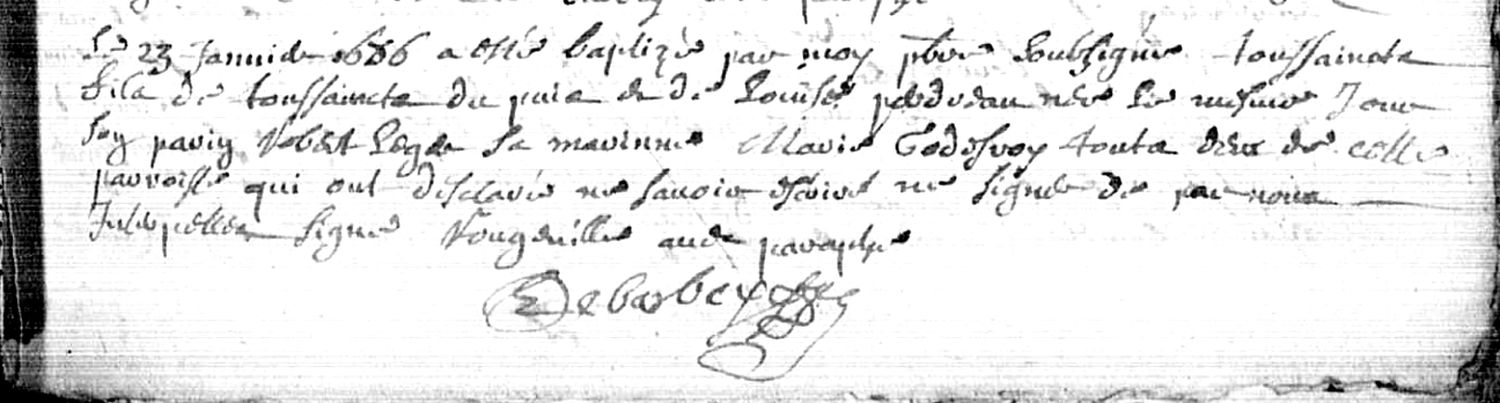 Le 23 Janvier 1686 a esté baptizé par moy pbre soubsigné toussaincts
fils de toussaincts du puis et de Louise née le mesme Jour
son parin Robert Leger sa marinne Marie Godefroy touts deux de cette
parroisse qui ont desclaré ne savoir escrire ne signer de par nous
Interpeller signé Vougeuille avec paraphe
De barbey